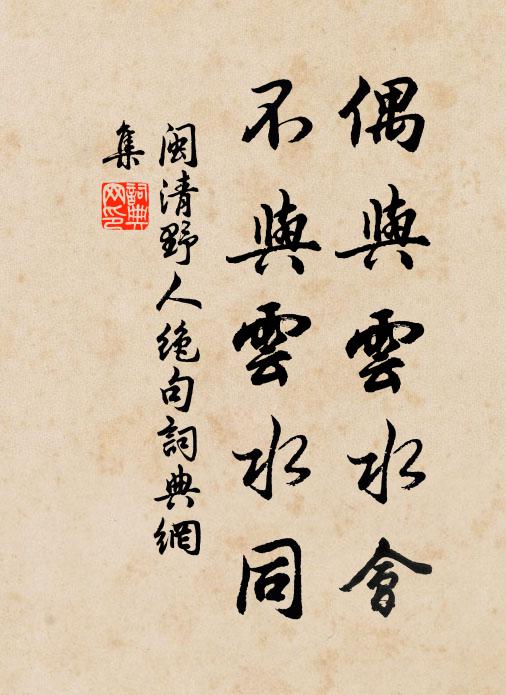 偶與雲水會
不與雲水同
閩清野人絶句詞典網
集
詞典
网印